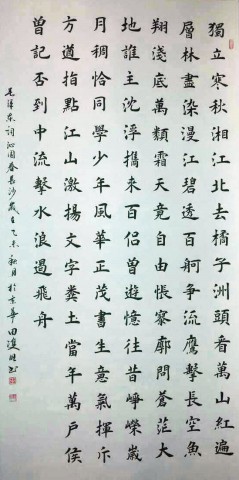 獨立寒秋湘江北去橘子洲頭看萬山紅遍
層林盡染漫江碧透百舸爭流鷹擊長空魚
翔淺底萬類霜天竟自由悵寥廓問蒼茫大
地誰主沈浮攜來百侶曾遊憶往昔崢嶸歲
月稠恰同學少年風華正茂書生意氣揮斥
方遒指點江山激揚文字糞土當年萬戶侯
曾記否到中流擊水浪遏飛舟
毛澤東詞沁園春長沙歲在乙未秋月於京華田